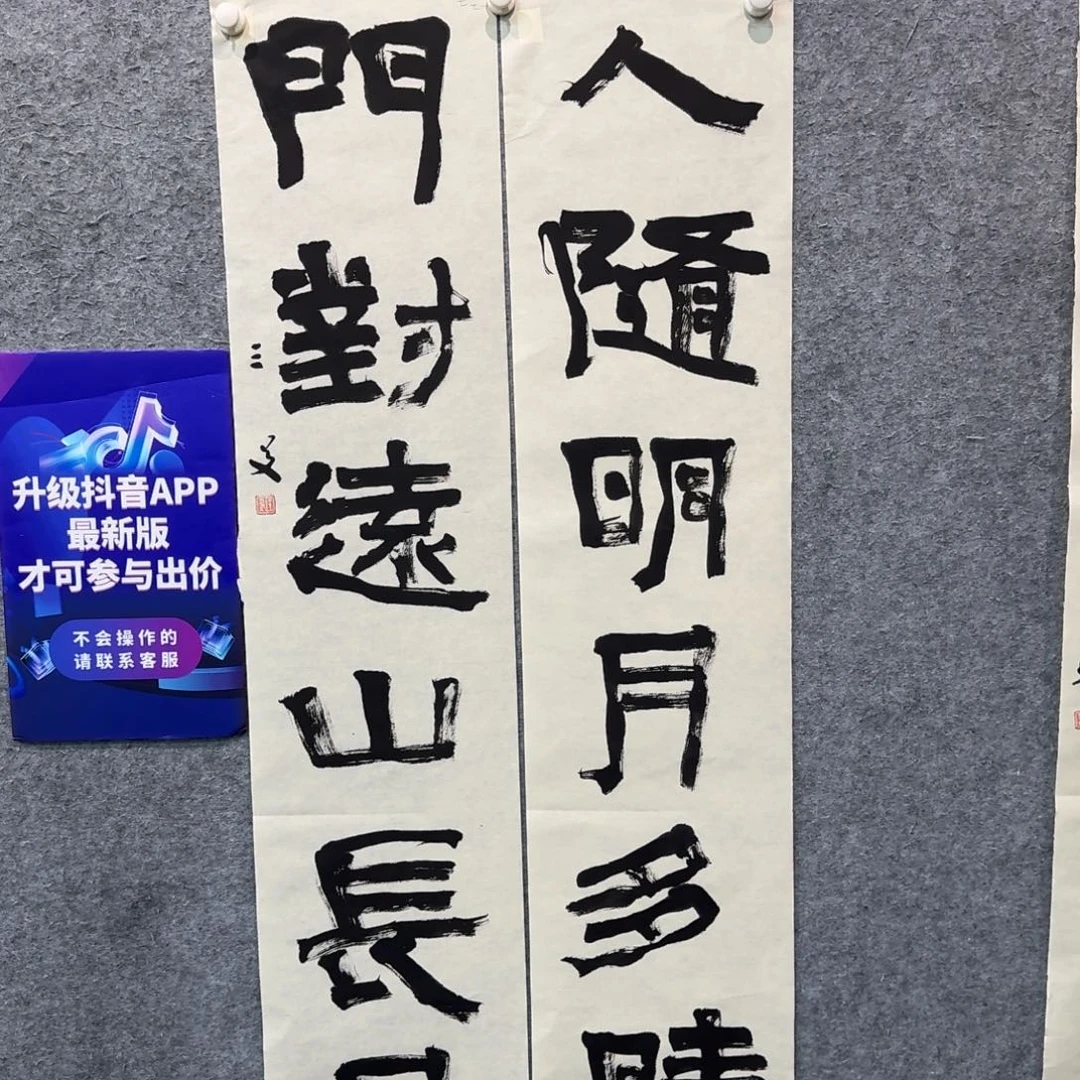 人隨明月多
門對遠山長
升级抖音APP
最新版
才可参与出价
不会操作的
请联系客服